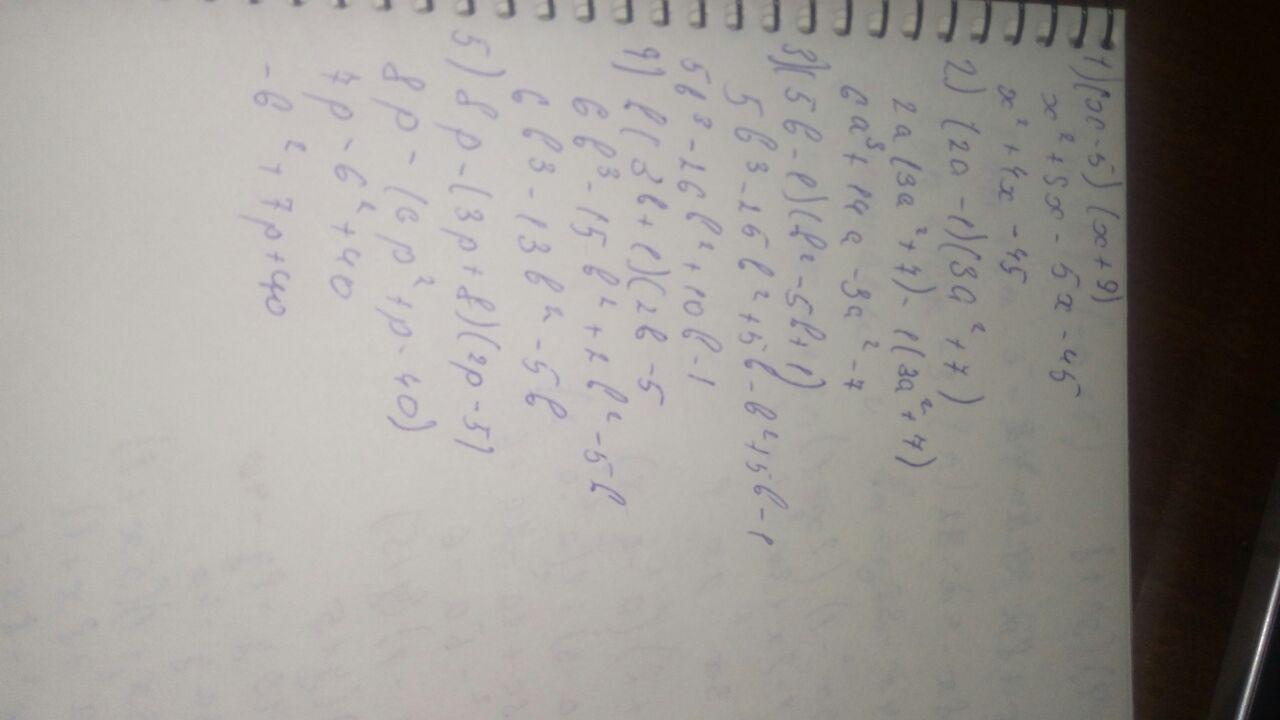 1) (x-5)(x+9)
x² + 9x - 5x - 45
x² + 4x - 45
2) (2a - 1)(3a² + 7)
2a(3a² + 7) - 1(3a² + 7)
6a³ + 14a - 3a² - 7
3) (5b - 1)(b² - 5b + 1)
5b³ - 25b² + 5b - b² + 5b - 1
5b³ - 26b² + 10b - 1
4) b(3b + 1)(2b - 5
6b³ - 15b² + 2b² - 5b
6b³ - 13b² - 5b
5) 8p - (3p + 8)(2p - 5)
8p - (6p² + p - 40)
7p - 6² + 40
- 6² + 7p + 40